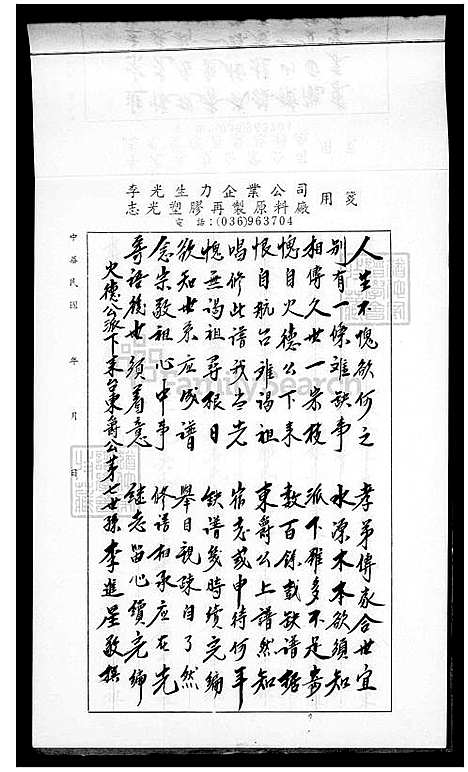 李光生力企業公司
志光塑膠再製原料廠 用箋
電話:(036)963704
人生不愧欲何之 孝弟傳家合世宜
別有一條難缺事 水源木本欲須知
相傳久世一宗枝 派下雖多不是奇
愧自火德公下來 數百餘載缺譜
恨自航台難謁祖 東爵公上譜然知
唱修此譜我台先 宿志或申待何年
愧無謁祖尋根日 缺譜幾時續完編
欲知世系應成譜 舉目親疎自了然
念宗敬祖心中事 修譜相承應在先
寄語後世須着意 継志留心續完編
火德公派下來台東爵公第七世孫 李進呈敬撰
中華民國 年 月 日
FamilySearch